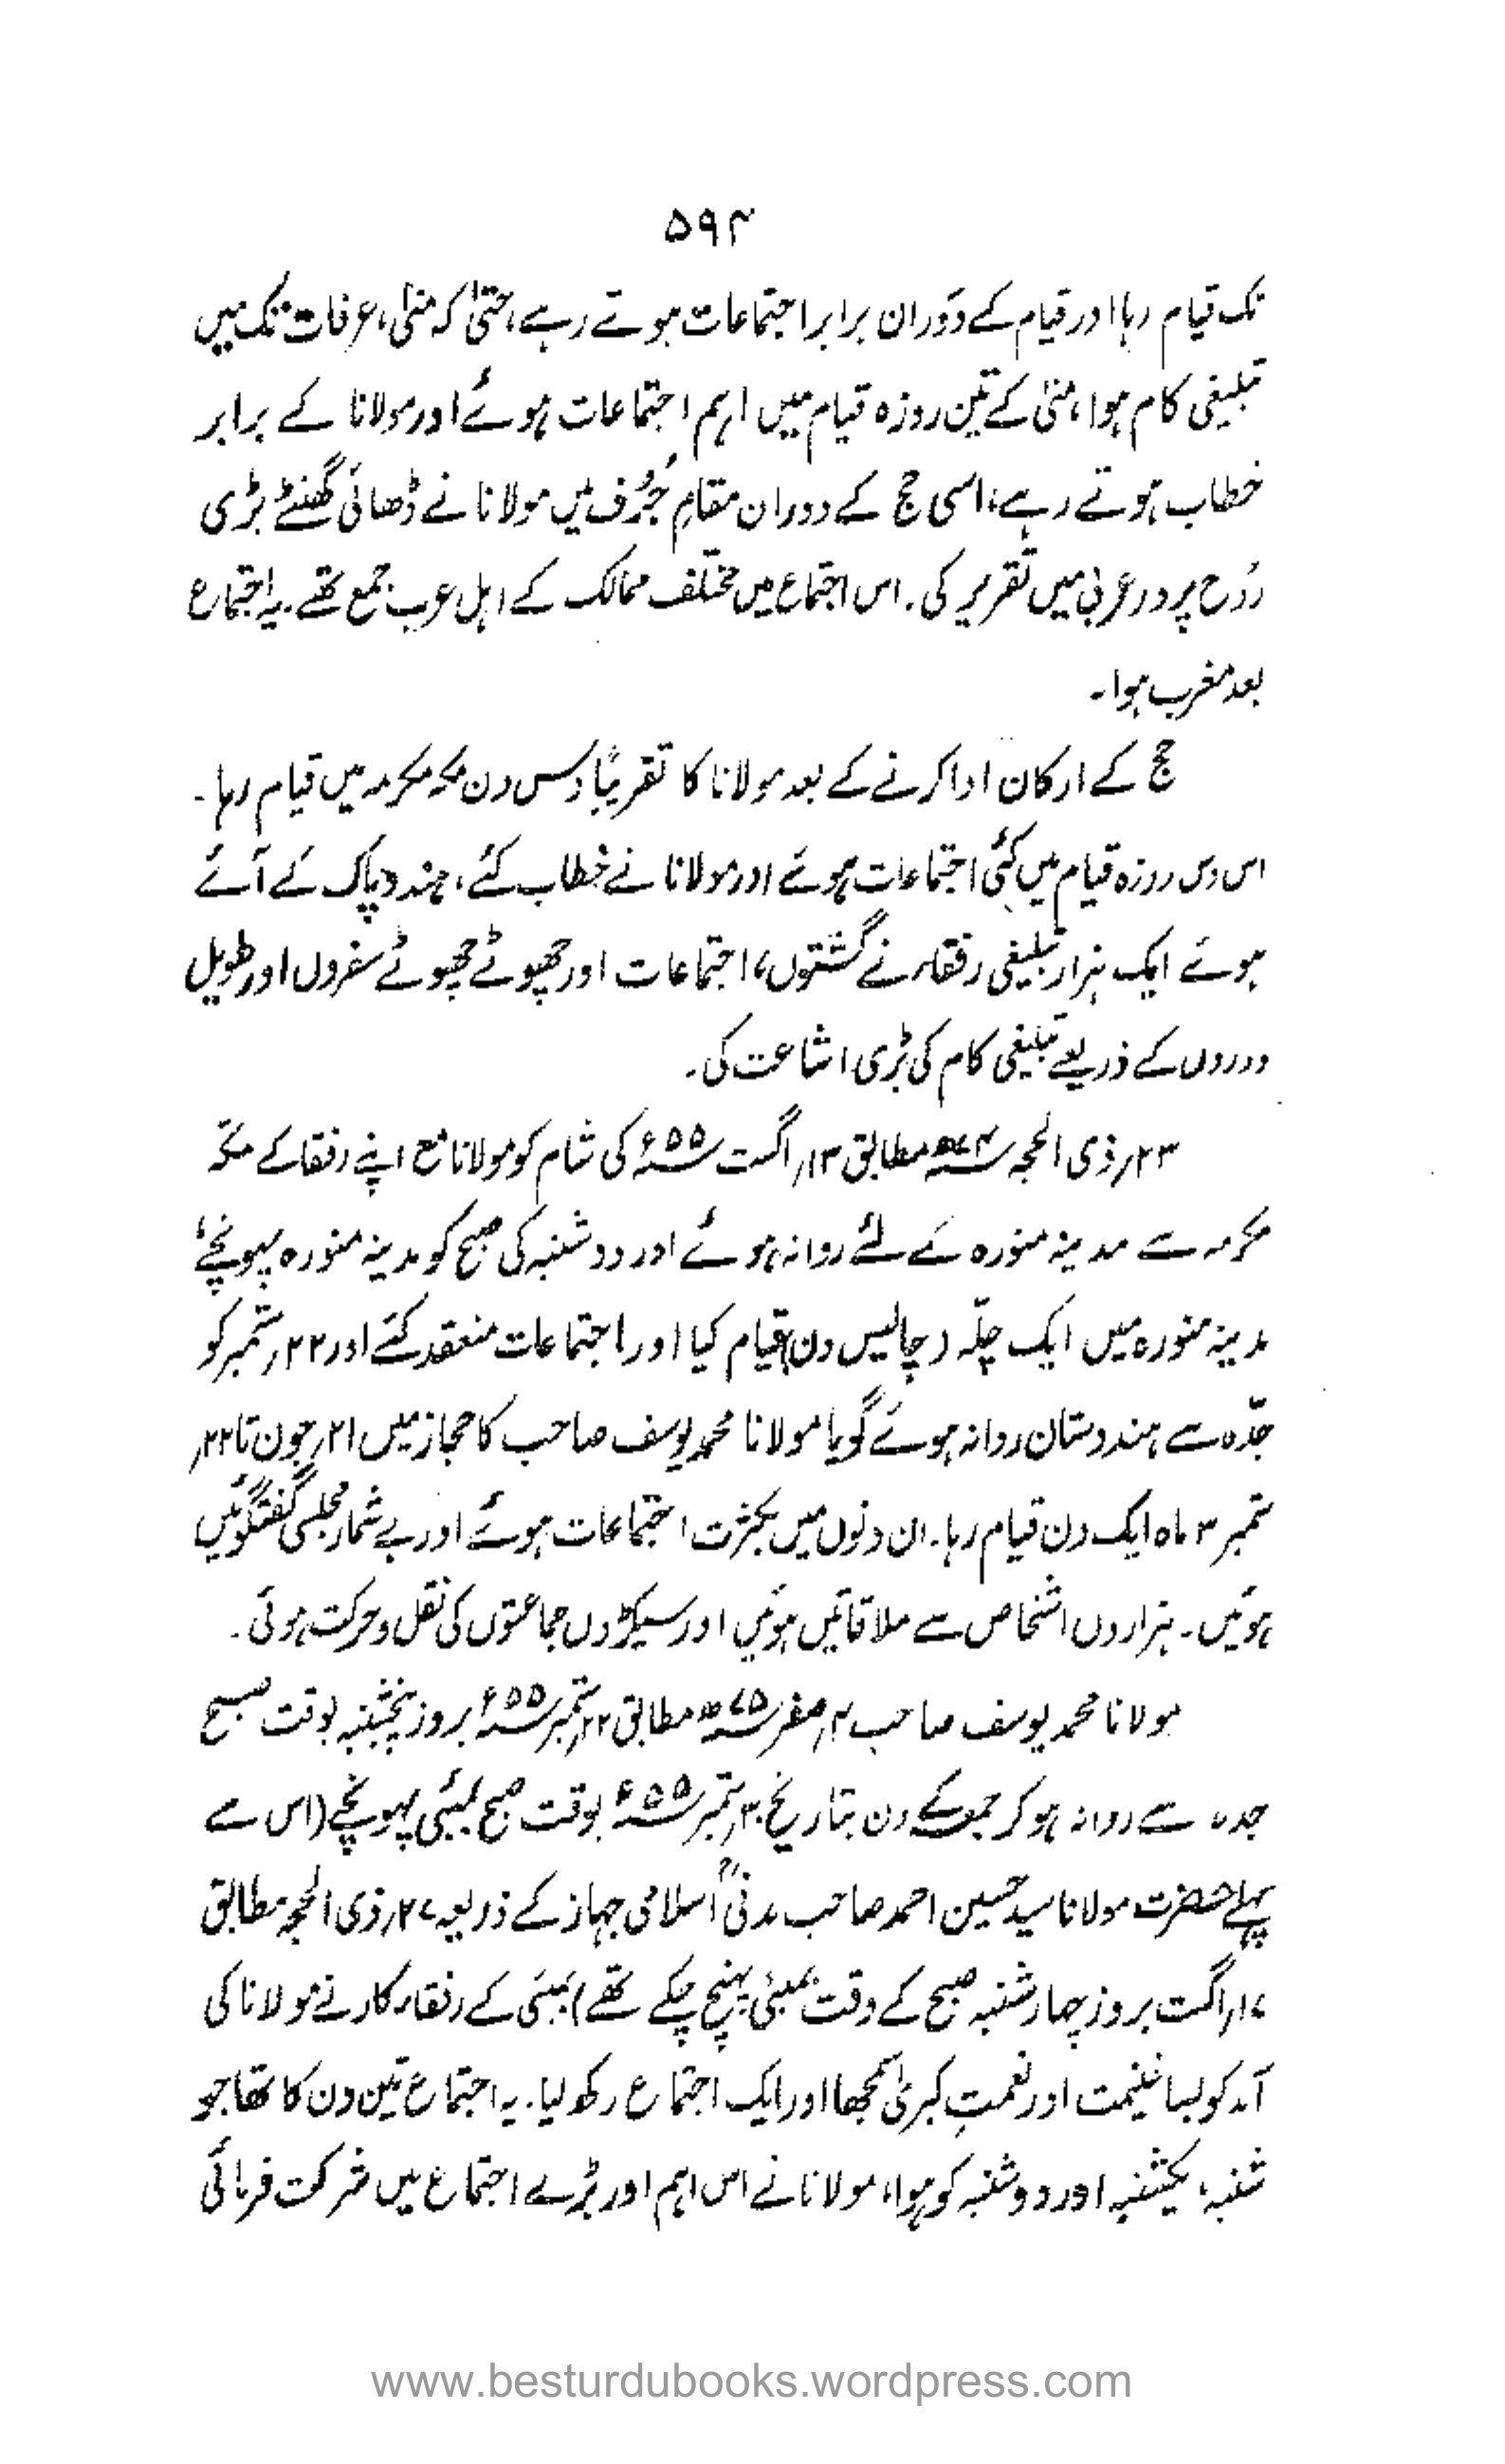 ۵۹۴
تک قیام رہا اور قیام کے دَوران برابر اجتماعات ہوتے رہے، حتیٰ کہ منیٰ، عرفات تک میں
تبلیغی کام ہوا، منیٰ کے تین روزہ قیام میں اہم اجتماعات ہوئے اور مولانا کے برابر
خطاب ہوتے رہے، اسی حج کے دوران مقامِ جُرُف میں مولانا نے ڈھائی گھنٹے بڑی
رُوح پرور عربی میں تقریر کی۔ اس اجتماع میں مختلف ممالک کے اہل عرب جمع تھے۔ یہ اجتماع
بعد مغرب ہوا۔
حج کے ارکان ادا کرنے کے بعد مولانا کا تقریباً دس دن مکہ مکرمہ میں قیام رہا۔
اس دس روزہ قیام میں کئی اجتماعات ہوئے اور مولانا نے خطاب کئے، ہند و پاک کے آئے
ہوئے ایک ہزار تبلیغی رفقاء نے گشتوں، اجتماعات اور چھوٹے چھوٹے سفروں اور طویل
دوروں کے ذریعے تبلیغی کام کی بڑی اشاعت کی۔
۲۳؍ذی الحجہ ۷۴ھ مطابق ۱۳؍اگست ۵۵ء کی شام کو مولانا مع اپنے رفقا کے مکہ
مکرمہ سے مدینہ منورہ کے لئے روانہ ہوئے اور دوشنبہ کی صبح کو مدینہ منورہ پہونچے،
مدینہ منورہ میں ایک چلّہ (چالیس دن) قیام کیا اور اجتماعات منعقد کئے اور ۲۲؍ستمبر کو
جدّہ سے ہندوستان روانہ ہوئے گویا مولانا محمد یوسف صاحب کا حجاز میں ۲۱؍جون تا ۲۲؍
ستمبر ۳ ماہ ایک دن قیام رہا۔ ان دنوں میں بکثرت اجتماعات ہوئے اور بے شمار مجلسی گفتگوئیں
ہوئیں۔ ہزاروں اشخاص سے ملاقاتیں ہوئیں اور سیکڑوں جماعتوں کی نقل و حرکت ہوئی۔
مولانا محمد یوسف صاحب ۴؍صفر ۷۵ھ مطابق ۲۲؍ستمبر ۵۵ء بروز پنجشنبہ بوقت صبح
جدہ سے روانہ ہو کر جمعہ کے دن بتاریخ ۳۰؍ستمبر ۵۵ء بوقت صبح بمبئی پہونچے (اس سے
پہلے حضرت مولانا سید حسین احمد صاحب مدنیؒ اسلامی جہاز کے ذریعہ ۲۷؍ذی الحجہ مطابق
۱۷؍اگست بروز چہار شنبہ صبح کے وقت بمبئی پہنچ چکے تھے) بمبئی کے رفقاء کار نے مولانا کی
آمد کو بسا غنیمت اور نعمتِ کبریٰ سمجھا اور ایک اجتماع رکھ لیا۔ یہ اجتماع تین دن کا تھا جو
شنبہ، یکشنبہ اور دوشنبہ کو ہوا، مولانا نے اس اہم اور بڑے اجتماع میں شرکت فرمائی
www.besturdubooks.wordpress.com